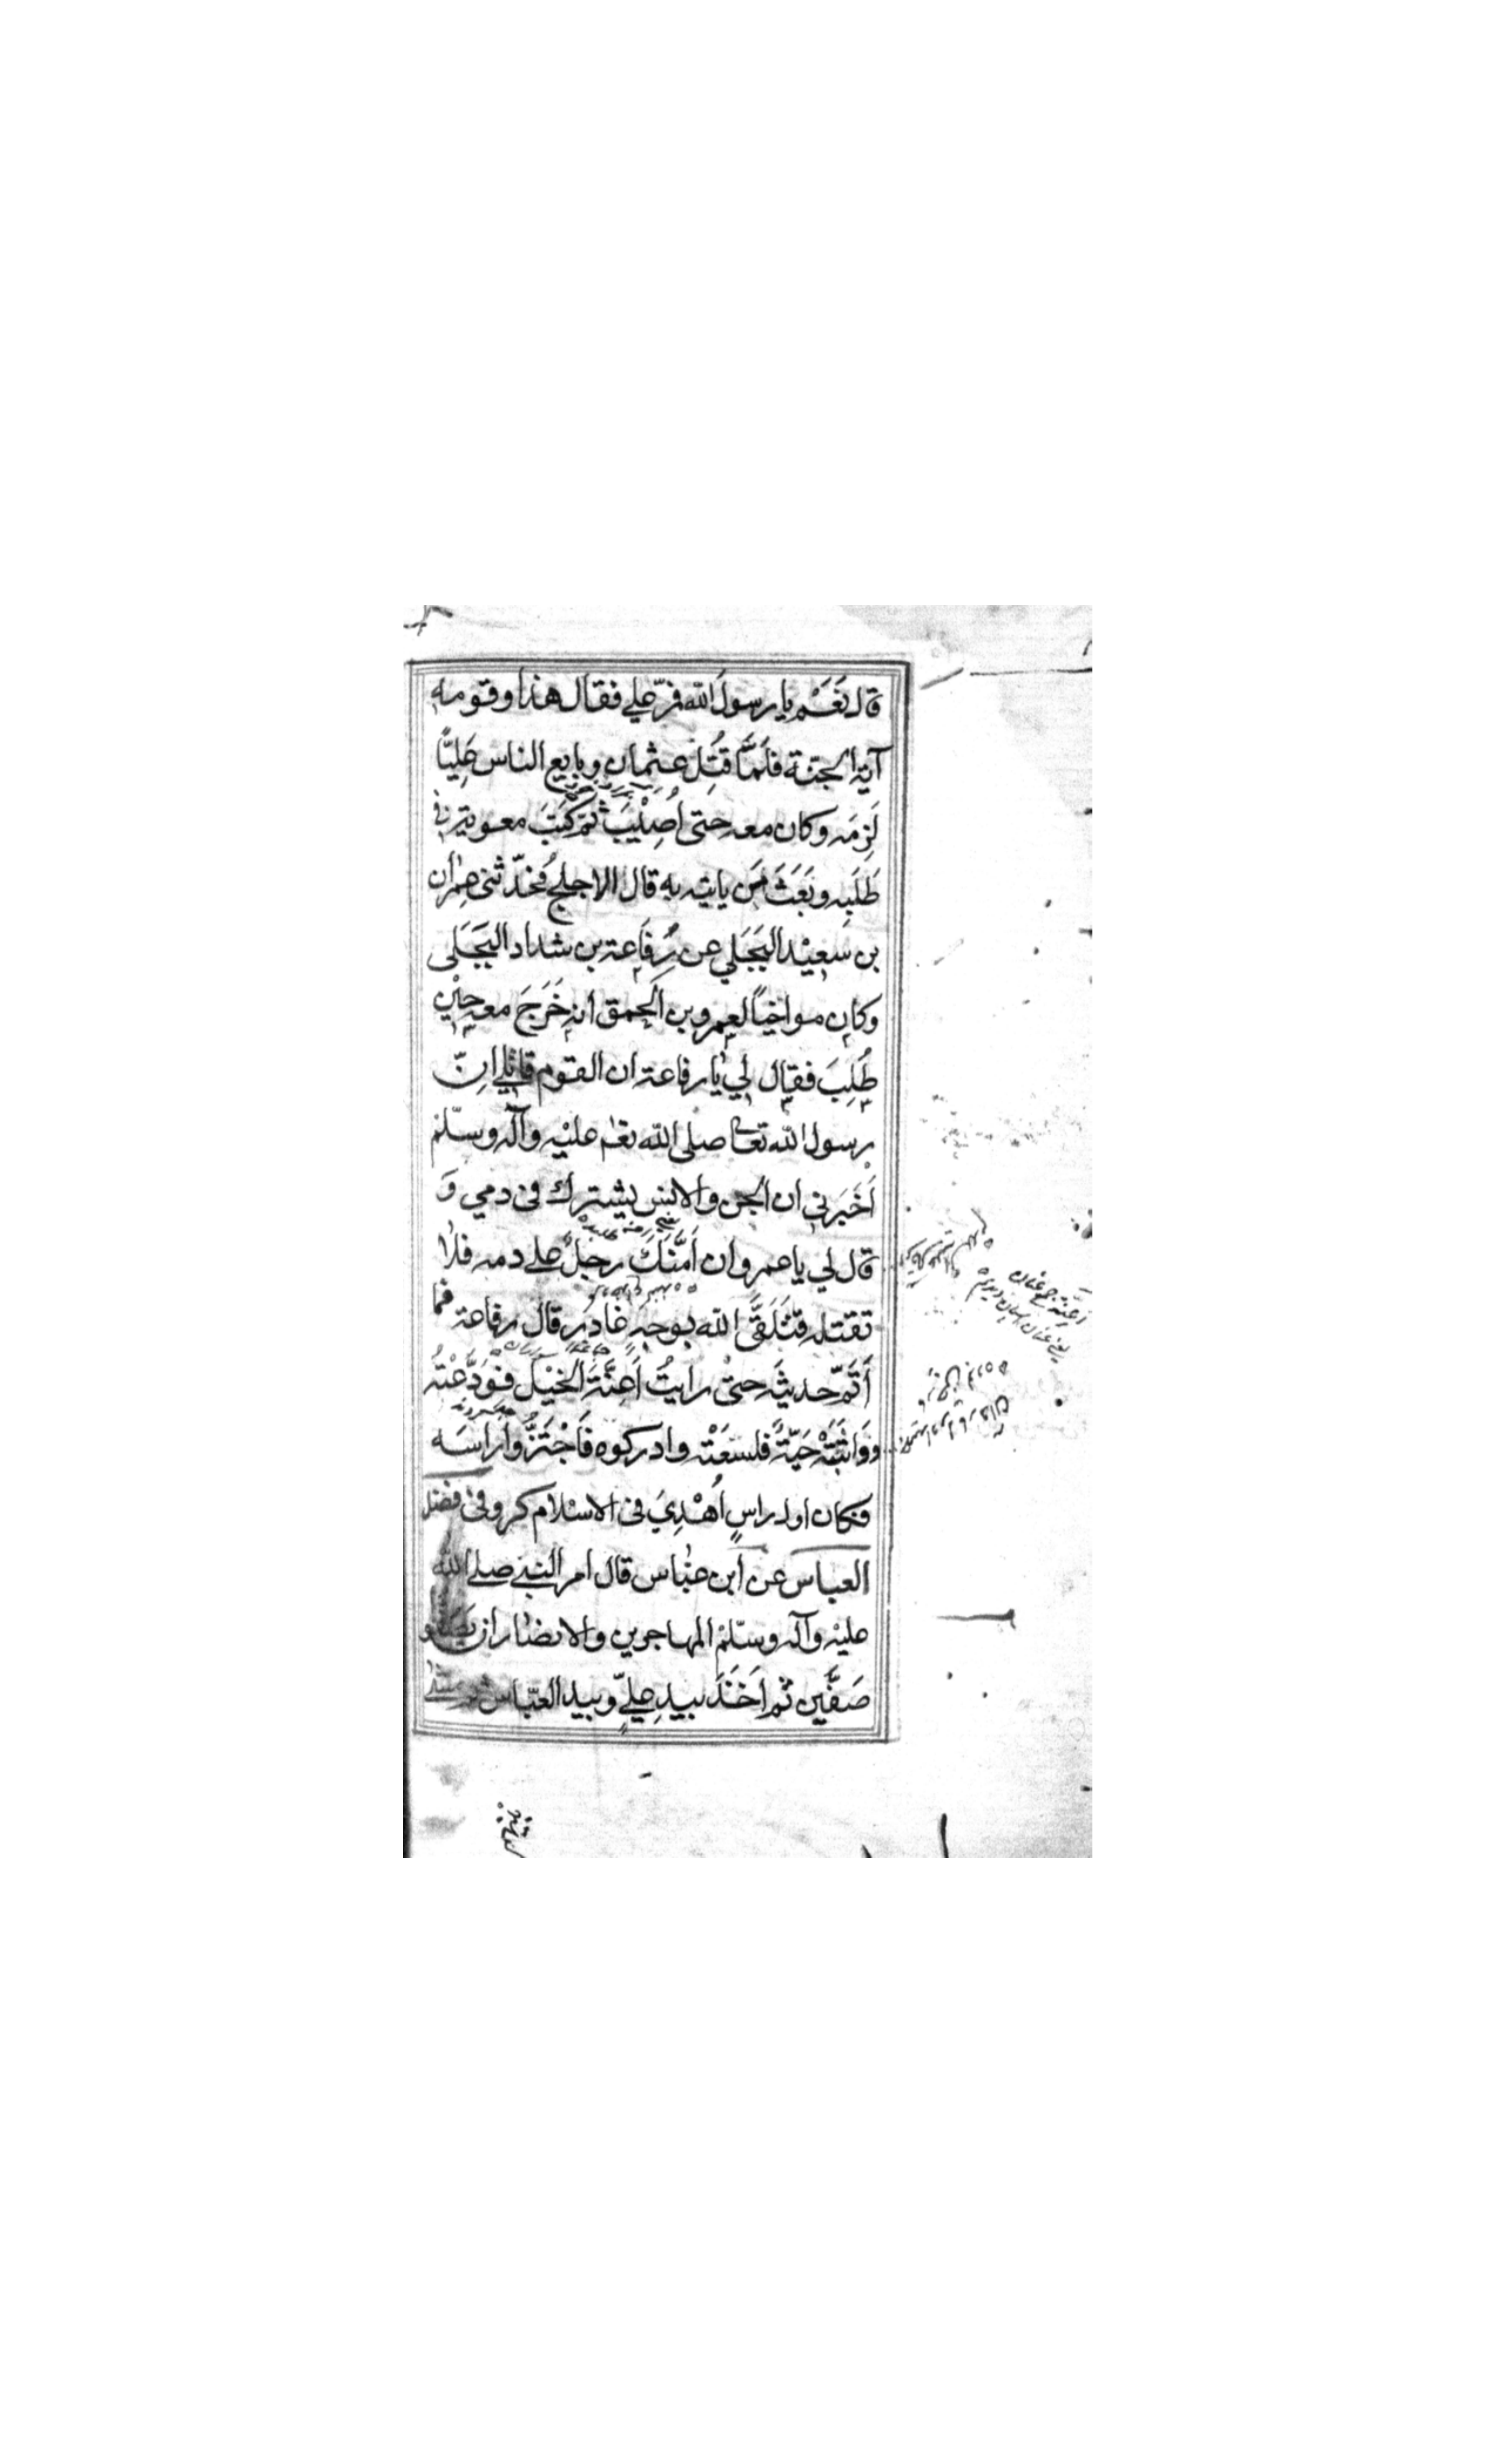 قال نَعَمْ يا رسولَ الله فمرّ علي فقال هذا وقومه
آية الجنة فلَمَّا قُتِل عثمان وبايع الناس عَلِيًّا
لَزِمَه وكان معه حتى اُصِيْبَ ثم كَتَبَ معوية في
طَلَبِه وبَعَثَ مَن ياتيه به قال الاجلح فحدّثنى عمران
بن سَعِيْد البَجَلي عن رِفاعة بن شداد البَجَلى
وكان مواخيًا لعمرو بن الحمق انه خَرَجَ معه حِيْن
طُلِبَ فقال لي يا رفاعة ان القوم قاتلي انّ
رسول الله تعالى صلى الله تعم عليْه وآله وسلّم
اَخْبَرني ان الجن والانس يشترك فى دمي وَ
قال لي يا عمرو ان اَمَّنَكَ رجلٌ على دمه فلا
تقتله فَتَلَقَّى الله بوجهٍ غادرٍ قال رفاعة فما
اَتَمّ حديثَه حتىْ رايتُ اَعِنَّةَ الخيْل فوَدَّعْتُه
ووَاثَبَتْه حَيّةٌ فلسعَتْه وادركوه فَاحْتَزُّوا راسَه
فكان اول راسٍ اُهْدِيَ فى الاسْلام كر وفى فضل
العباس عن ابن عبّاس قال امر النبي صلى الله
عليْه وآله وسلّم المهاجرين والانصار ان
صَفَّين ثم اَخَذَ بيدِ عليٍّ وبيد العبّاس